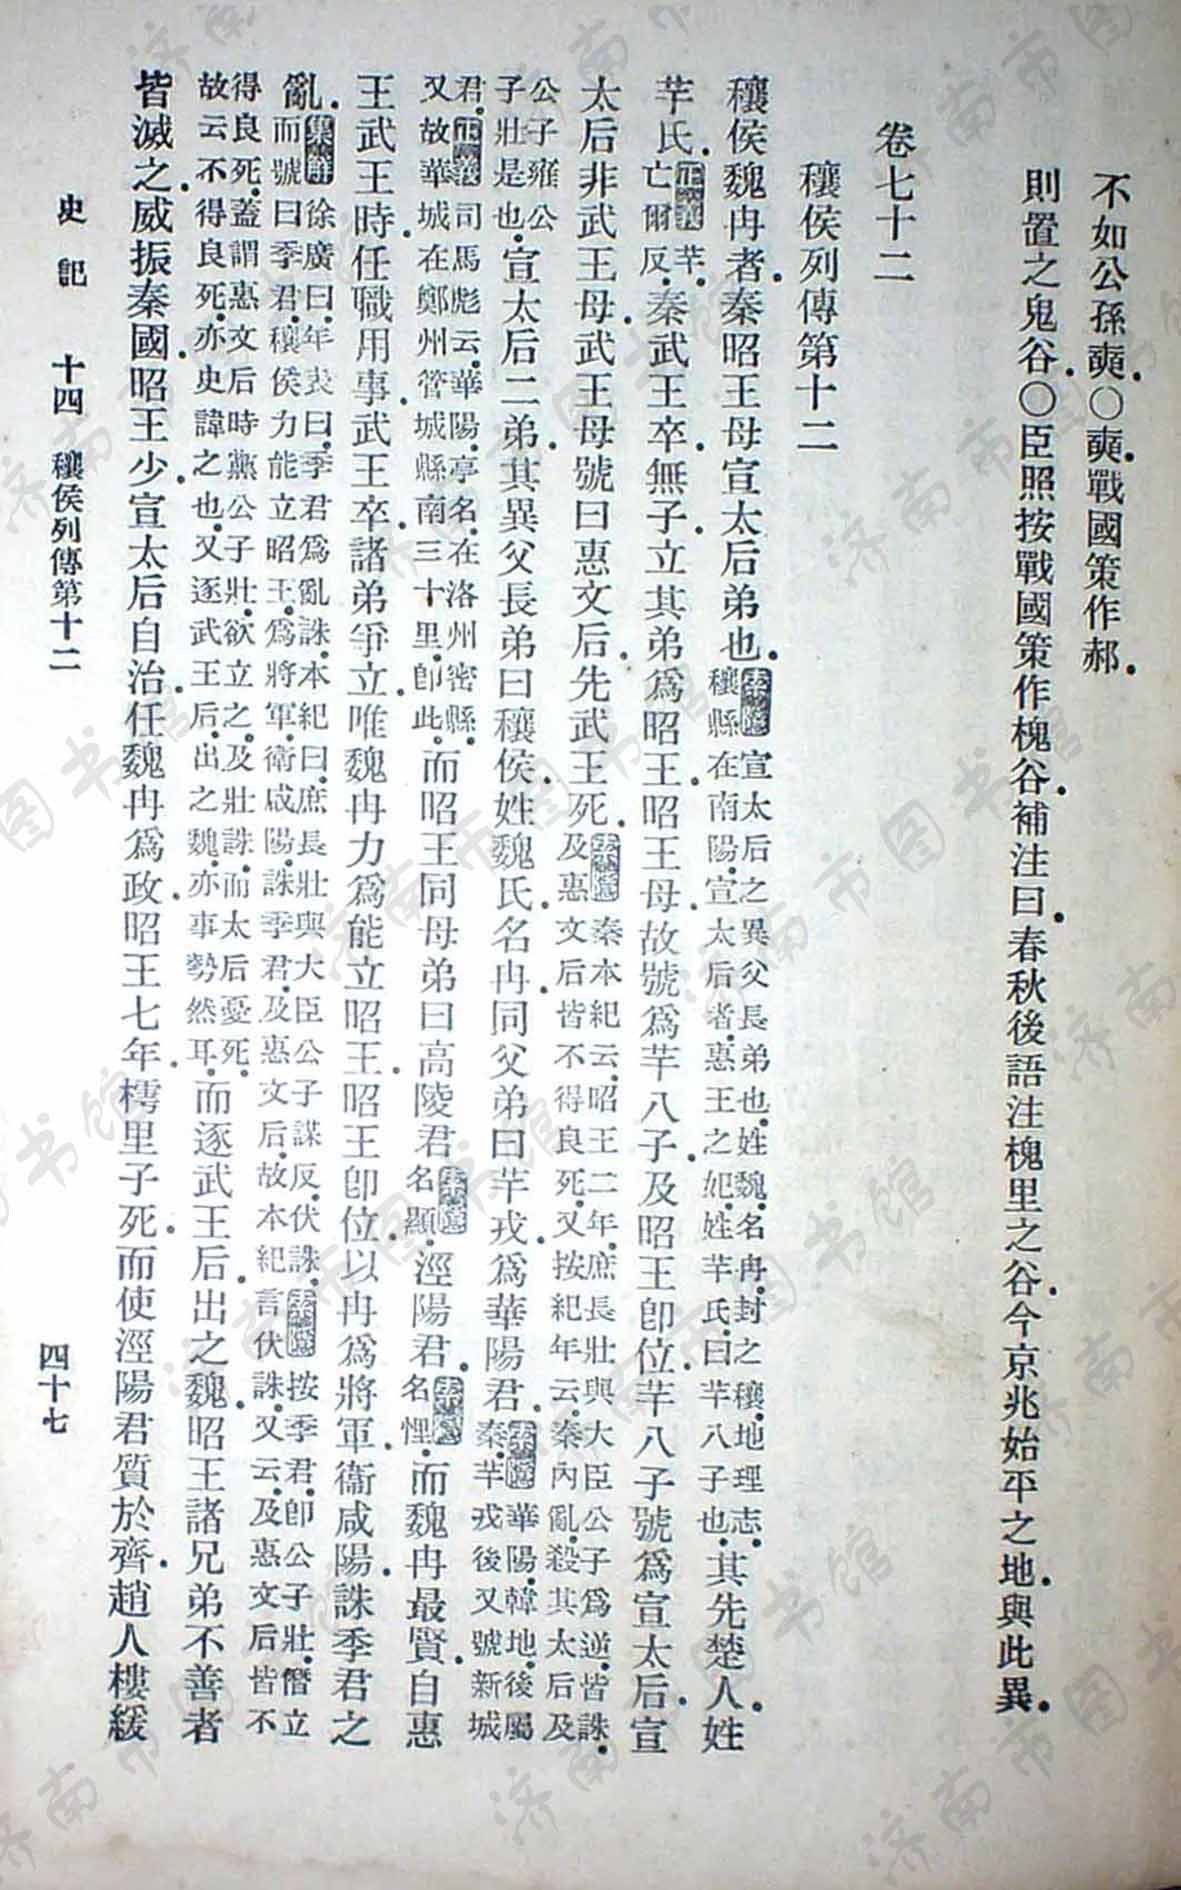 不如公孫奭。〇奭。戰國策作郝。
則置之鬼谷。〇臣照按戰國策作槐谷。補注曰。春秋後語注槐里之谷。今京兆始平之地。與此異。
卷七十二
穰侯列傳第十二
穰侯魏冉者。秦昭王母宣太后弟也。索隱宣太后之異父長弟也。姓魏。名冉。封之穰。地理志。穰縣在南陽。宣太后者。惠王之妃。姓芈氏。曰芈八子也。其先楚人。姓
芈氏。正義芈。亡爾反。秦武王卒。無子。立其弟爲昭王。昭王母故號爲芈八子。及昭王卽位。芈八子號爲宣太后。宣
太后非武王母。武王母號曰惠文后。先武王死。索隱秦本紀云。昭王二年。庶長壯與大臣公子爲逆。皆誅。及惠文后皆不得良死。又按紀年云。秦內亂。殺其太后及
公子雍公子壯是也。宣太后二弟。其異父長弟曰穰侯。姓魏氏。名冉。同父弟曰芈戎。爲華陽君。索隱華陽。韓地。後屬秦。芈戎後又號新城
君。正義司馬彪云。華陽。亭名。在洛州密縣。又故華城在鄭州管城縣南三十里。卽此。而昭王同母弟曰高陵君索隱名顯。涇陽君。索隱名悝。而魏冉最賢。自惠
王武王時。任職用事。武王卒。諸弟爭立。唯魏冉力爲能立昭王。昭王卽位。以冉爲將軍。衞咸陽。誅季君之
亂。集解徐廣曰。年表曰。季君爲亂誅。本紀曰。庶長壯與大臣公子謀反。伏誅。索隱按季君。卽公子壯。僭立而號曰季君。穰侯力能立昭王。爲將軍。衛咸陽。誅季君。及惠文后。故本紀言伏誅。又云。及惠文后皆不
得良死。蓋謂惠文后時黨公子壯。欲立之。及壯誅。而太后憂死。故云不得良死。亦史諱之也。又逐武王后。出之魏。亦事勢然耳。而逐武王后。出之魏。昭王諸兄弟不善者
皆滅之。威振秦國。昭王少。宣太后自治。任魏冉爲政。昭王七年。樗里子死。而使涇陽君質於齊。趙人樓緩
史記 十四 穰侯列傳第十二 四十七
济南市图书馆